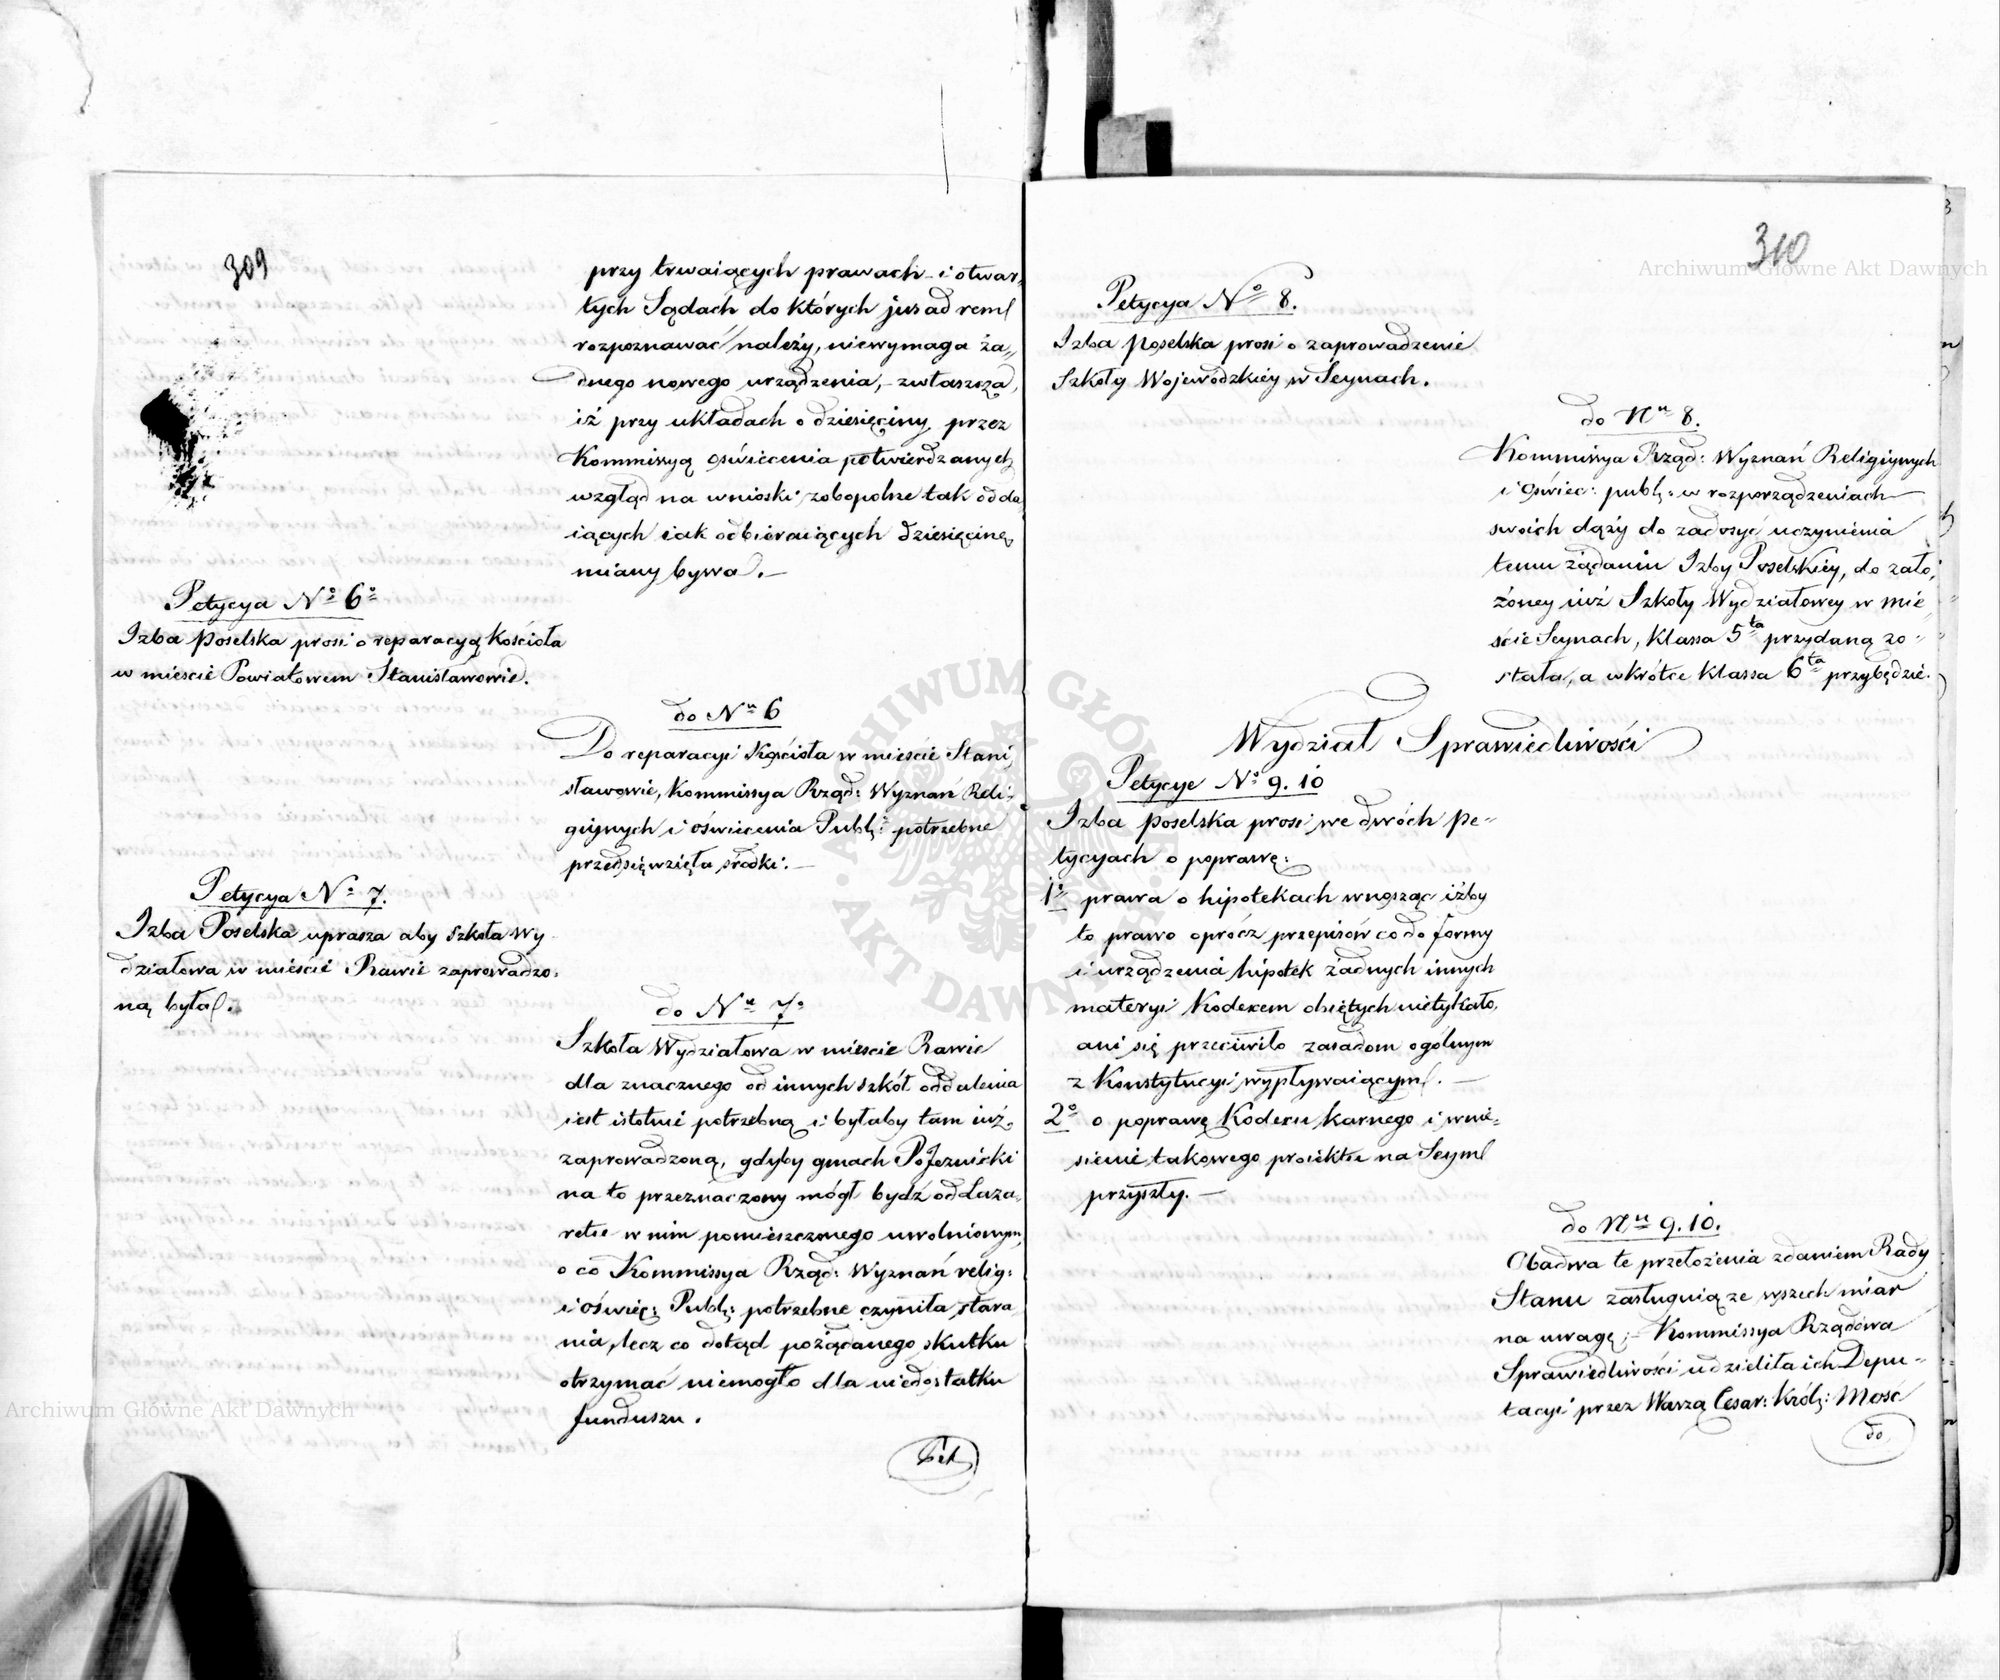 309
przy trwaiących prawach i otwar-
tych Sądach do których jus ad rem
rozpoznawać należy, niewymaga ża-
dnego nowego urządzenia, - zwłaszcza,
iż przy układach o dziesięciny przez
Kommissyą oświecenia potwierdzanych
wzgląd na wnioski zobopólne tak odda
iących iak odbieraiących dziesięcinę
miany bywa. —
Petycya No 6o
Izba Poselska prosi o reparacyą Kościoła
w mieście Powiatowem Stanisławowie.
do Nu 6
Do reparacyi Kościoła w mieście Stani
sławowie, Kommissya Rząd: Wyznań Reli-
giynych i oświecenia Publ: potrzebne
przedsięwzięła środki. —
Petycya No 7.
Izba Poselska uprasza aby Szkoła Wy
działowa w mieście Rawie zaprowadzo-
ną była.
do Nu 7o
Szkoła Wydziałowa w mieście Rawie
dla znacznego od innych szkół oddalenia
iest istotnie potrzebną i byłaby tam iuż
zaprowadzoną, gdyby gmach PoJezuicki
na to przeznaczony mógł bydź od Laza-
retu w nim pomieszczonego uwolnionym,
o co Kommissya Rząd: Wyznań relig:
i oświec: Publ: potrzebne czyniła stara
nia, lecz co dotąd pożądanego skutku
otrzymać niemogło dla niedostatku
funduszu.
Pet
310
Petycya No 8.
Izba Poselska prosi o zaprowadzenie
Szkoły Wojewódzkiey w Seynach.
do Nu 8.
Kommissya Rząd: Wyznań Religiynych
i Oświec: publ: w rozporządzeniach
swoich dąży do zadosyć uczynienia
temu żądaniu Izby Poselskiey, do zało-
żoney iuż Szkoły Wydziałowey w mie
ście Seynach, klassa 5ta przydaną zo-
stała, a wkrótce klassa 6ta przybędzie.
Wydział Sprawiedliwości
Petycye No 9. 10
Izba Poselska prosi we dwóch Pe-
tycyach o poprawę:
1o prawa o hipotekach wnosząc iżby
to prawo oprócz przepisów co do formy
i urządzenia hipotek żadnych innych
materyi Kodexem obiętych nietykało,
ani się przeciwiło zasadom ogólnym
z Konstytucyi wypływaiącym. —
2o o poprawę Kodexu karnego i wnie-
sienie takowego proiektu na Seym
przyszły. —
do Nu 9. 10.
Obadwa te przełożenia zdaniem Rady
Stanu zasługuią ze wszech miar
na uwagę; - Kommissya Rządowa
Sprawiedliwości udzieliła ich Depu-
tacyi przez Waszą Cesar: Król: Mość
do
Archiwum Główne Akt Dawnych
Archiwum Główne Akt Dawnych
ARCHIWUM GŁÓWNE
AKT DAWNYCH